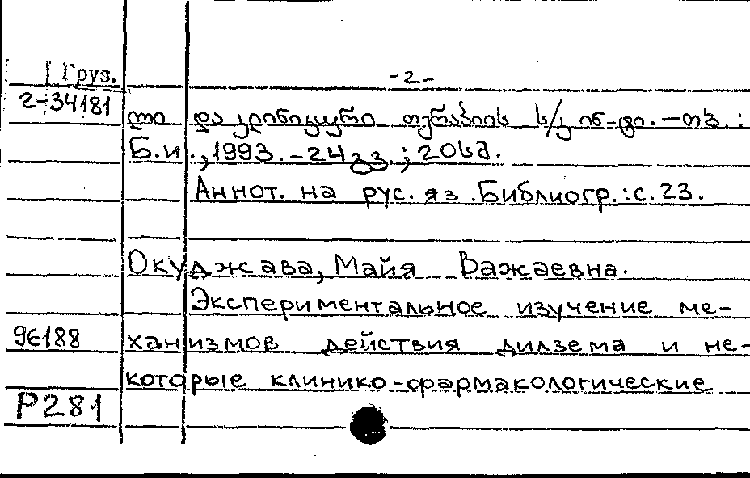 Груз.
-2-
2-34181
ლი და კლინიკური თერაპიის ს/კ ინ-ტი. – თბ. :
Б.и., 1993. – 24 გვ. ; 20 სმ.
Аннот. на рус. яз. Библиогр.: с. 23.
Окуджава, Майя Важаевна.
Экспериментальное изучение ме-
96188
ханизмов действия дилзема и не-
которые клинико-фармакологические
Р281